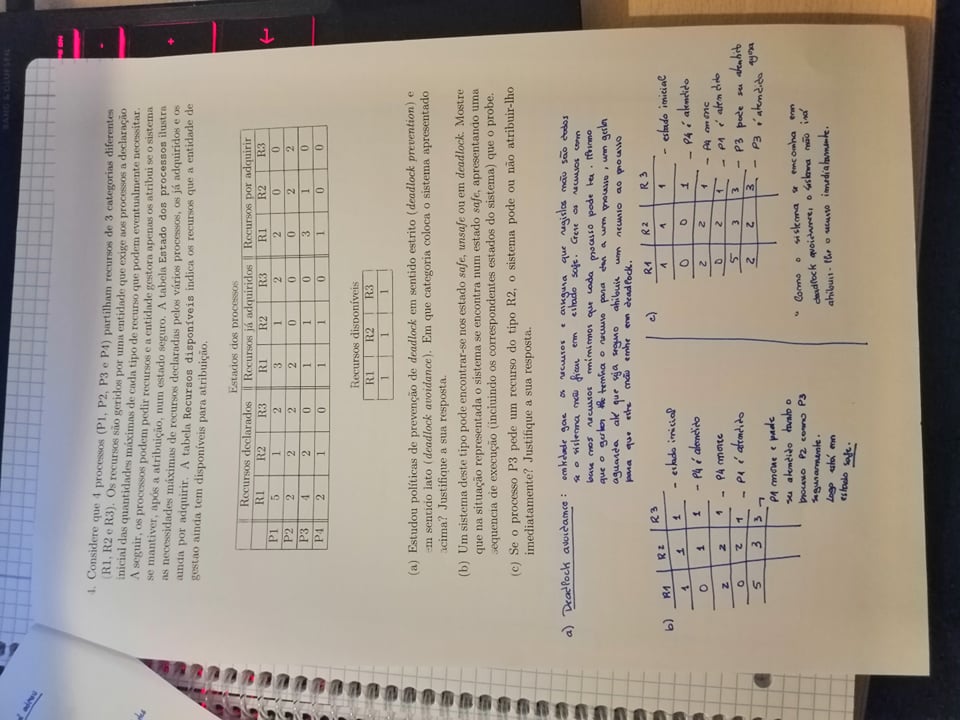 BANG & OLUFSEN
4. Considere que 4 processos (P1, P2, P3 e P4) partilham recursos de 3 categorias diferentes
(R1, R2 e R3). Os recursos são geridos por uma entidade que exige aos processos a declaração
inicial das quantidades máximas de cada tipo de recurso que podem eventualmente necessitar.
A seguir, os processos podem pedir recursos e a entidade gestora apenas os atribui se o sistema
se mantiver, após a atribuição, num estado seguro. A tabela Estado dos processos ilustra
as necessidades máximas de recursos declaradas pelos vários processos, os já adquiridos e os
ainda por adquirir. A tabela Recursos disponíveis indica os recursos que a entidade de
gestao ainda tem disponíveis para atribuição.
Estados dos processos
Recursos declarados Recursos já adquiridos Recursos por adquirir
R1 R2 R3 R1 R2 R3 R1 R2 R3
P1 5 1 2 3 1 2 2 0 0
P2 2 2 2 2 0 0 0 2 2
P3 4 2 0 1 1 0 3 1 0
P4 2 1 0 1 1 0 1 0 0
Recursos disponíveis
R1 R2 R3
1 1 1
(a) Estudou políticas de prevenção de deadlock em sentido estrito (deadlock prevention) e
em sentido lato (deadlock avoidance). Em que categoria coloca o sistema apresentado
acima? Justifique a sua resposta.
(b) Um sistema deste tipo pode encontrar-se nos estado safe, unsafe ou em deadlock. Mostre
que na situação representada o sistema se encontra num estado safe, apresentando uma
sequencia de execução (incluindo os correspondentes estados do sistema) que o probe.
(c) Se o processo P3 pede um recurso do tipo R2, o sistema pode ou não atribuir-lho
imediatamente? Justifique a sua resposta.
a) Deadlock avoidance: entidade gere os recursos e assegura que não são dados
se o sistema não ficar em estado safe. Gere os recursos com
base nos recursos mínimos que cada processo pode ter. Mesmo
que o gestor tenha o recurso para dar a um processo, um gestor
aguarda até que seja seguro atribuir um recurso ao processo
para que este não entre em deadlock.
b) R1 R2 R3
1 1 1 - estado inicial
0 1 1 - P4 é atendido
2 2 1 - P4 morre
0 2 1 - P1 é atendido
5 3 3
P1 morre e pode
ser atendido tanto o
processo P2 como P3
seguramente.
Logo está em
estado safe.
c) R1 R2 R3
1 1 1 - estado inicial
0 0 1 - P4 é atendido
2 2 1 - P4 morre
0 2 1 - P1 é atendido
5 3 3 - P3 pode ser atendido
2 2 3 - P3 é atendido agora
Como o sistema se encontra em
deadlock avoidance, o sistema não irá
atribuir-lhe o recurso imediatamente.